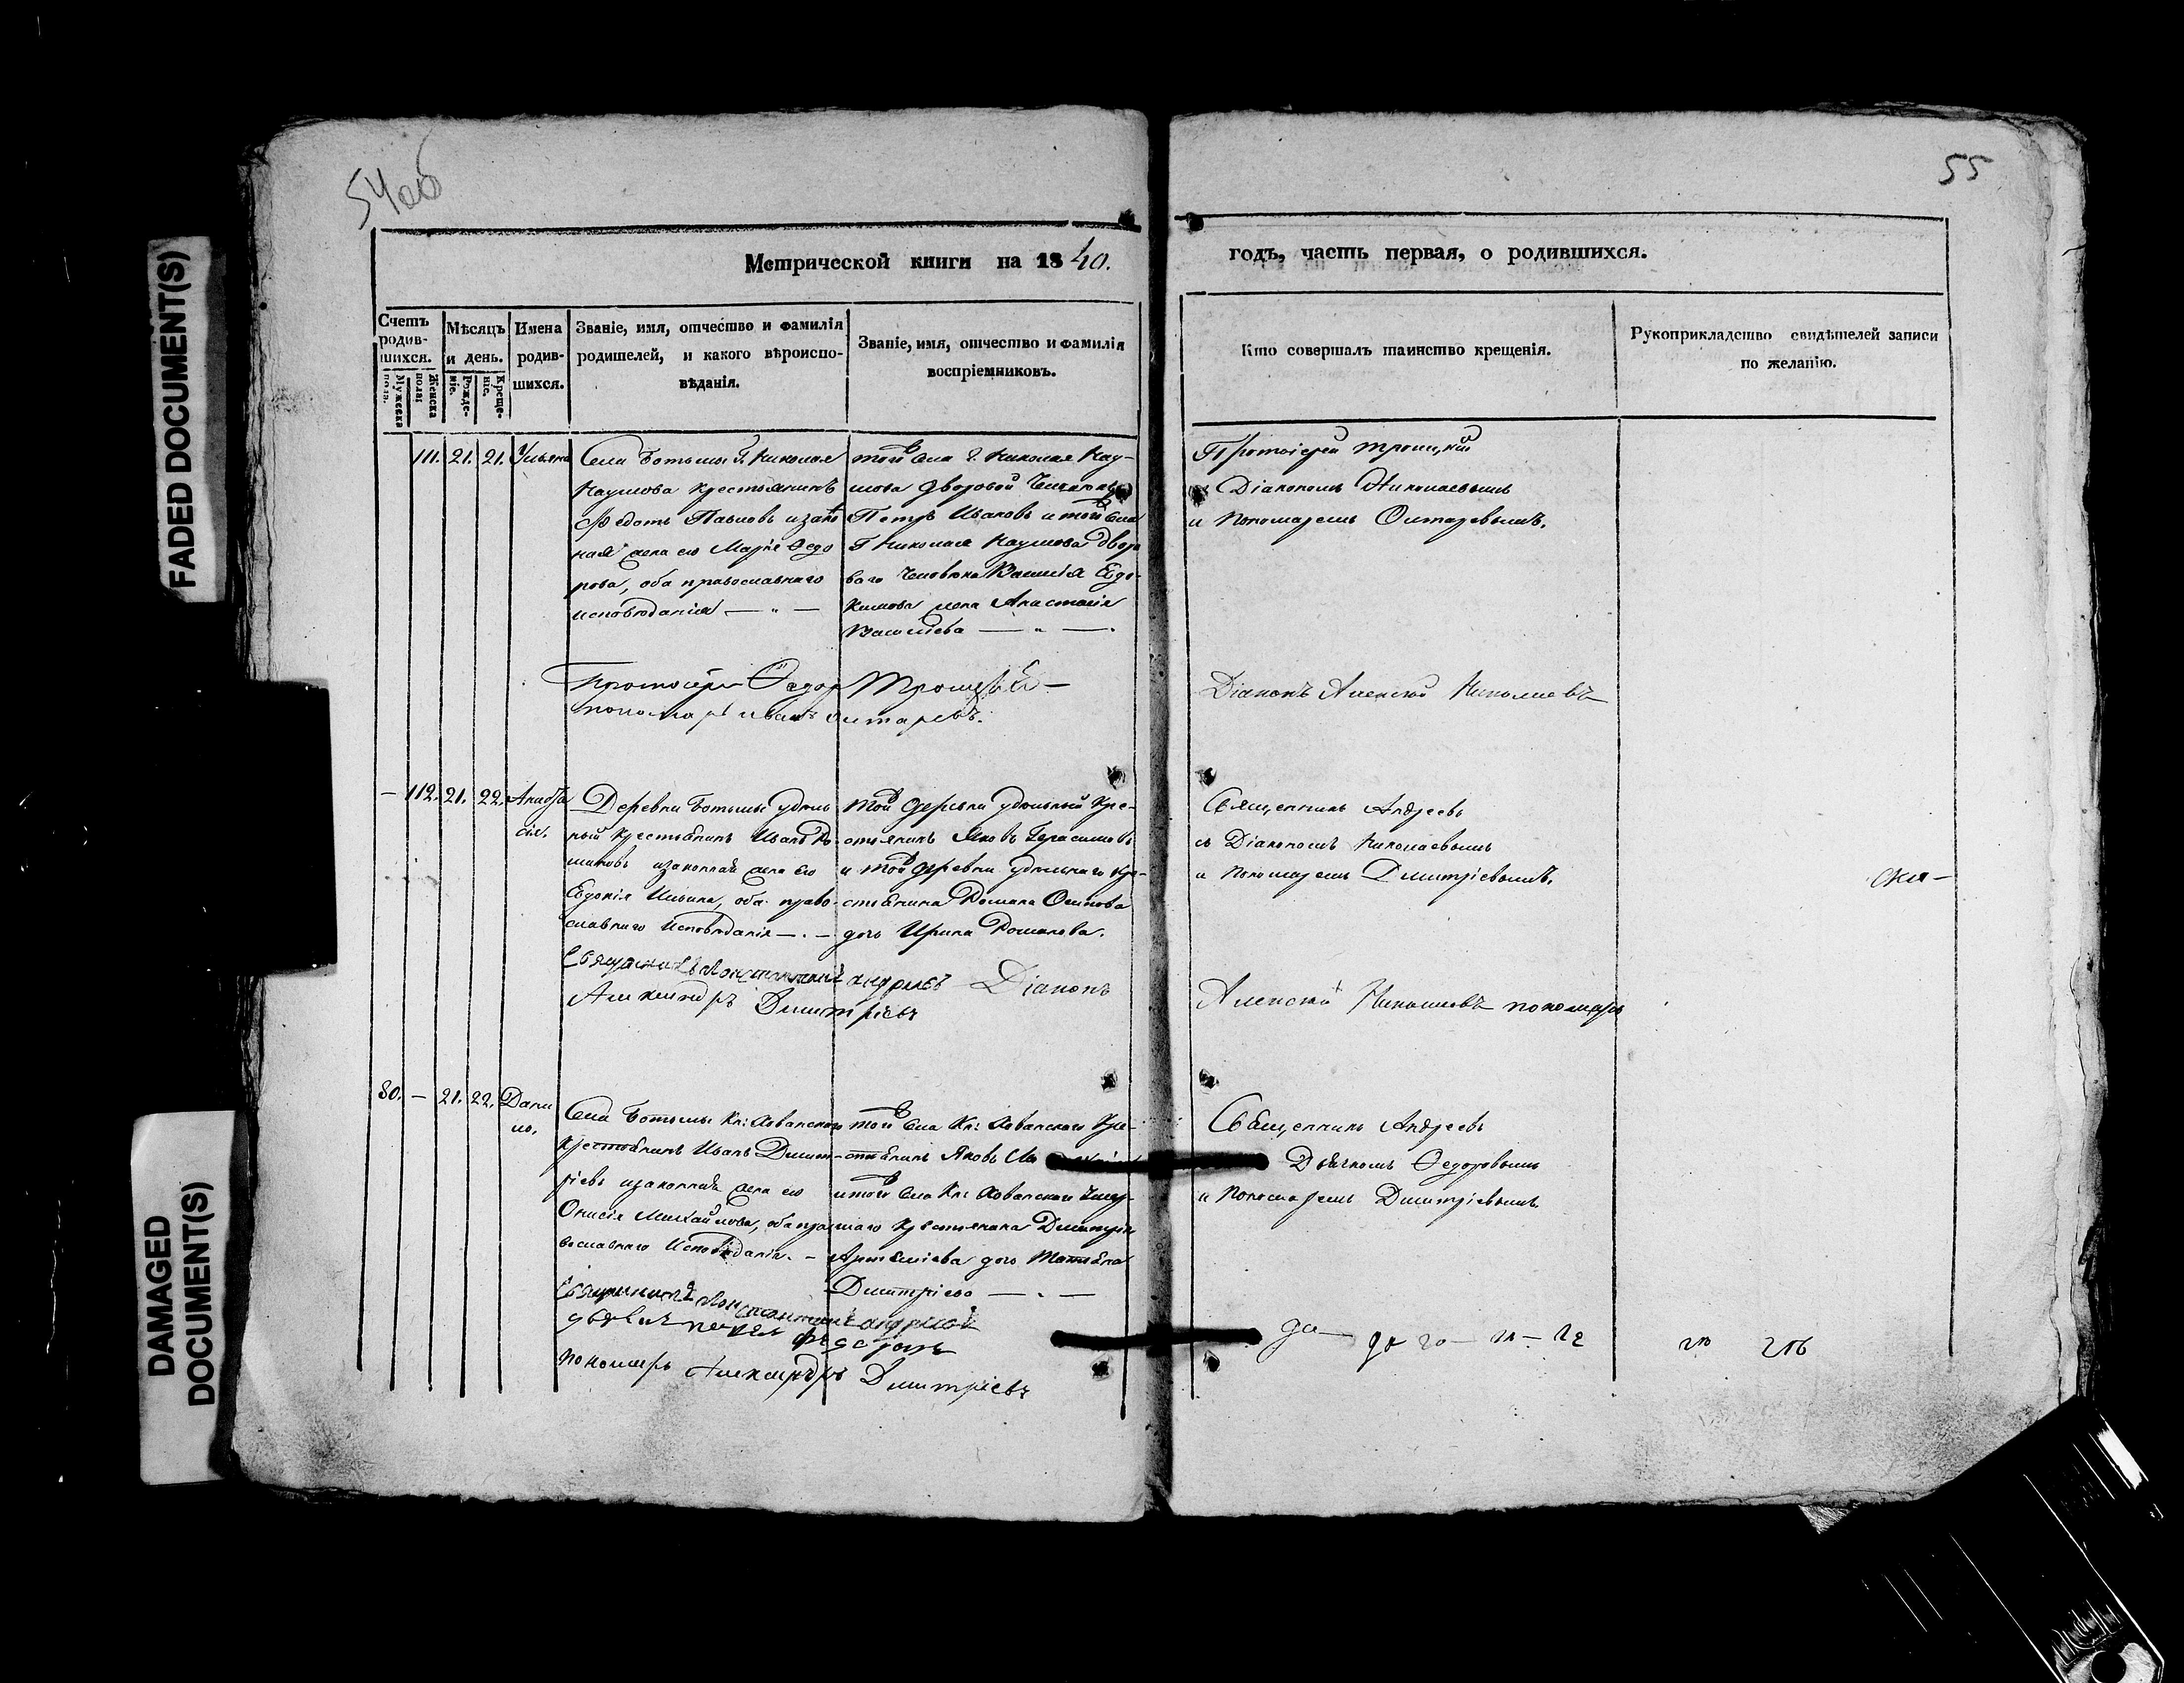 54об
55
Метрической книги на 1840.
годъ, часть первая, о родившихся.
Счетъ родившихся.
Мужеска пола.
Женска пола.
Мѣсяцъ и день.
Рожденіе.
Крещеніе.
Имена родившихся.
Званіе, имя, отчество и фамилія родителей, и какого вѣроисповѣданія.
Званіе, имя, отчество и фамилія воспріемниковъ.
Кто совершалъ таинство крещенія.
Рукоприкладство свидѣтелей записи по желанію.
111. 21. 21. Ульяна
Села Ботьмы г. Николая
Наумова крестьянинъ
Федотъ Павловъ и закон
ная жена его Марія Ѳедо
рова, оба православнаго
исповѣданія — " —
той села г. Николая Нау-
мова дворовой человѣкъ
Петръ Ивановъ и той села
Г Николая Наумова дворо
ваго человѣка Василія Евдо-
кимова жена Анастасія
Васильева — " —.
Протоіерей Троицкій
Діакономъ Николаевымъ
и Пономаремъ Октаревымъ.
Протоіерей Ѳедор Троицкій —
пономарь Иванъ Октаревъ.
Діаконъ Алексей Николаевъ
— 112. 21. 22. Анаста
сія.
Деревни Ботьмы удѣль
ный крестьянинъ Иванъ Ро-
мановъ и законная жена его
Евдокія Ильина, оба право-
славнаго Исповѣданія — . —
той деревни удѣльный кре-
стьянинъ Яковъ Герасимовъ
и той деревни удѣльнаго кре-
стьянина Романа Осипова
дочь Ирина Романова.
Священникъ Андреевъ
съ Діакономъ Николаевымъ
и Пономаремъ Дмитріевымъ.
Священникъ Константинъ Андреевъ Діаконъ
Алексей Николаевъ пономарь
Александръ Дмитріевъ
80. — 21. 22. Дани
ло.
Села Ботьмы Кн: Хованскаго
крестьянинъ Иванъ Дмит-
ріевъ и законная жена его
Онисія Михайлова, оба пра
вославнаго Исповѣданія. —
той села Кн: Хованскаго кре-
стьянинъ Яковъ
и той села Кн: Хованскаго умер-
шаго крестьянина Дмитрія
Артеміева дочь Татьяна
Дмитріева — . —
Священникъ Андреевъ
Дьячкомъ Ѳедоровымъ
и Пономаремъ Дмитріевымъ.
Священникъ Константинъ Андреевъ
дьячекъ Федоровъ
пономарь Александръ Дмитріевъ